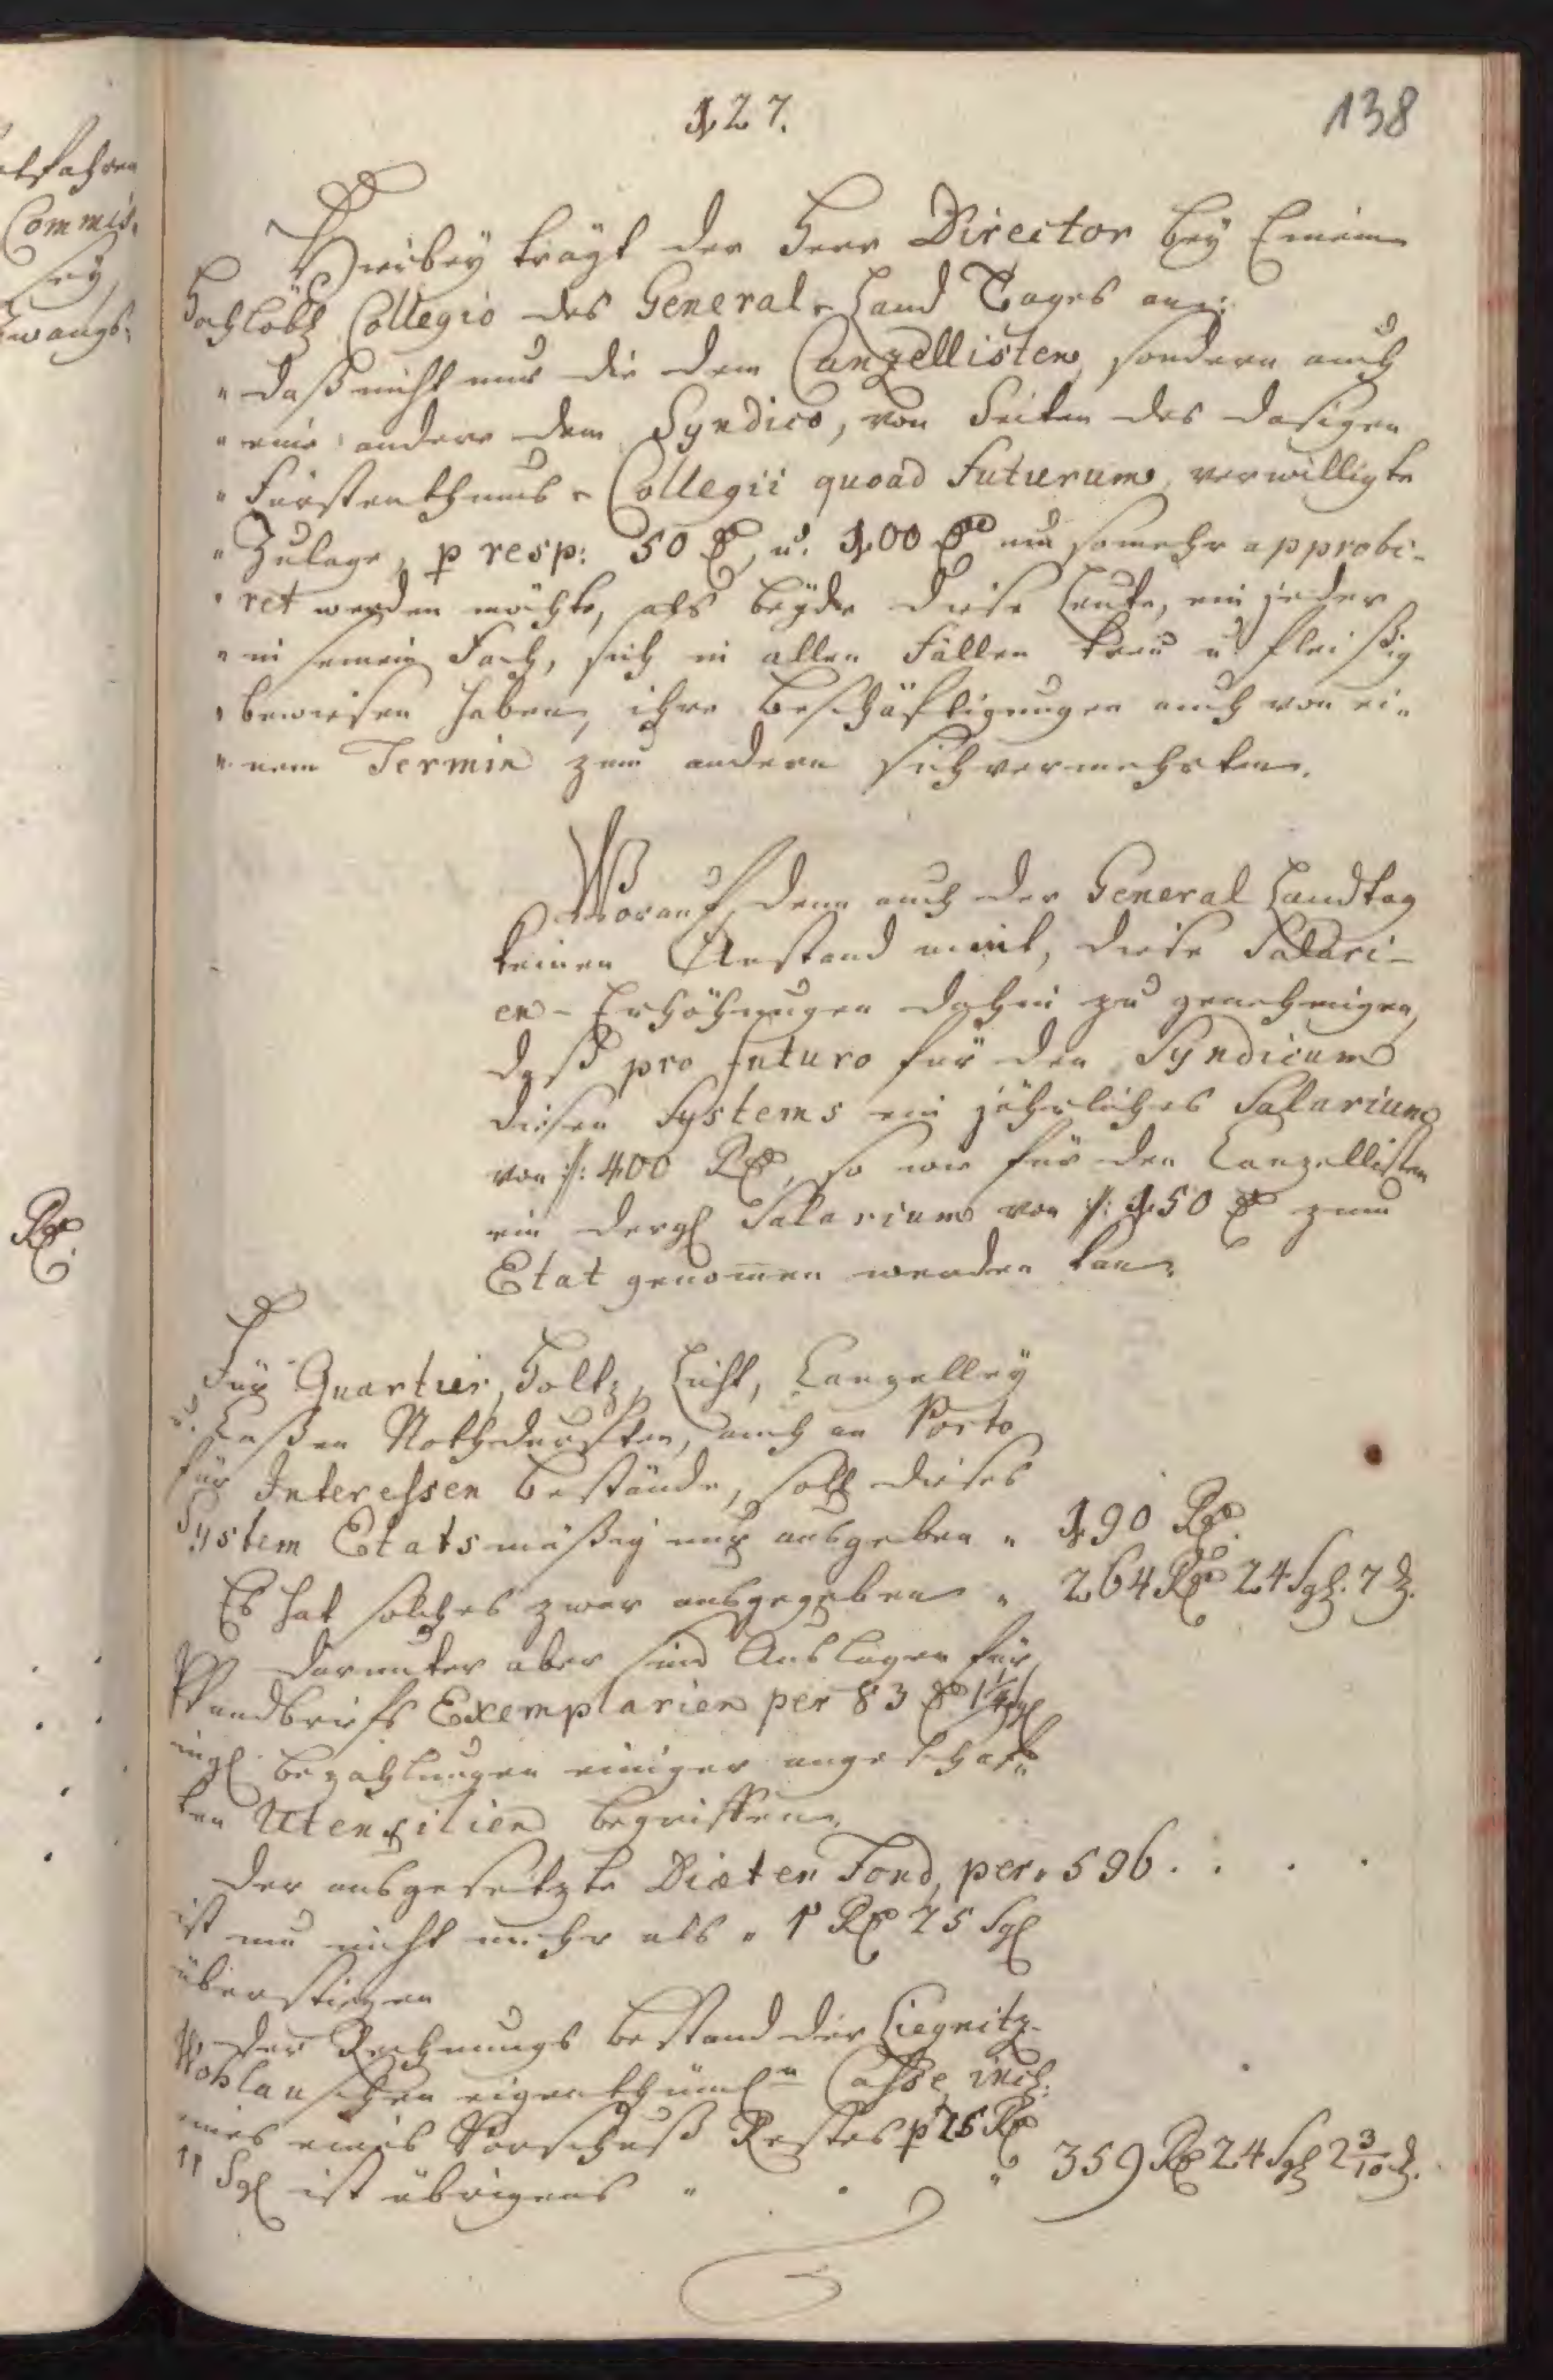 127.
138
Hierbey trägt der Herr Director bey Einem
Hochlöbl Collegio des General-Land Tages an:
"daß nicht nur die dem Canzellisten, sondern auch
"eine andere dem Syndico, von Seiten des dasigen
"Fürstenthums-Collegii quoad Futurum, verwilligte
"Zulage, p resp: 50 rt, u. 100 rt um somehr approbi-
"ret werden möchte, als beyde diese Leute, ein jeder
"in seinem Fach, sich in allen Fällen treu u. fleißig
"bewiesen haben, ihre Beschäftigungen auch von ei-
"nem Termin zum andern sich vermehrten.
Worauf denn auch der General Landtag
keinen Anstand nimt, diese Salari-
en-Erhöhungen dahin zu genehmigen,
daß pro futuro für den Syndicum
dieses Systems ein jährliches Salarium
von /: 400 Rt, so wie für den Canzellisten
ein dergl Salarium von /: 150 rt zum
Etat genomen werden kan.
Für Quartier, Holtz, Licht, Canzelley
u. Caßen Nothdurften, auch an Porto
für Interessen Bestände, soll dieses
System Etatsmäßig nur ausgeben " 190 Rt.
Es hat solches zwar ausgegeben " 264 Rt 24 Sgl. 7 d.
Darunter aber sind Auslagen für
Pfandbriefs Exemplarien per 83 rt 14 sgl
ingl. Bezahlungen einiger angeschaf-
ten Utensilien begriffen.
Der ausgesetzte Diæten Fond, per " 596 . . . .
ist nun nicht mehr als " 1 Rt 25 Sgl
überstiegen
Der Rechnungs Bestand der Liegnitz-
Wohlauschen eigenthüml.n Casse, incl:
eines Vorschuß Restes p 75 Rt
11 Sgl ist übrigens " . " 359 Rt 24 Sgl 2 3/10 d.
Commis-
sey
zwangs-
Rt.